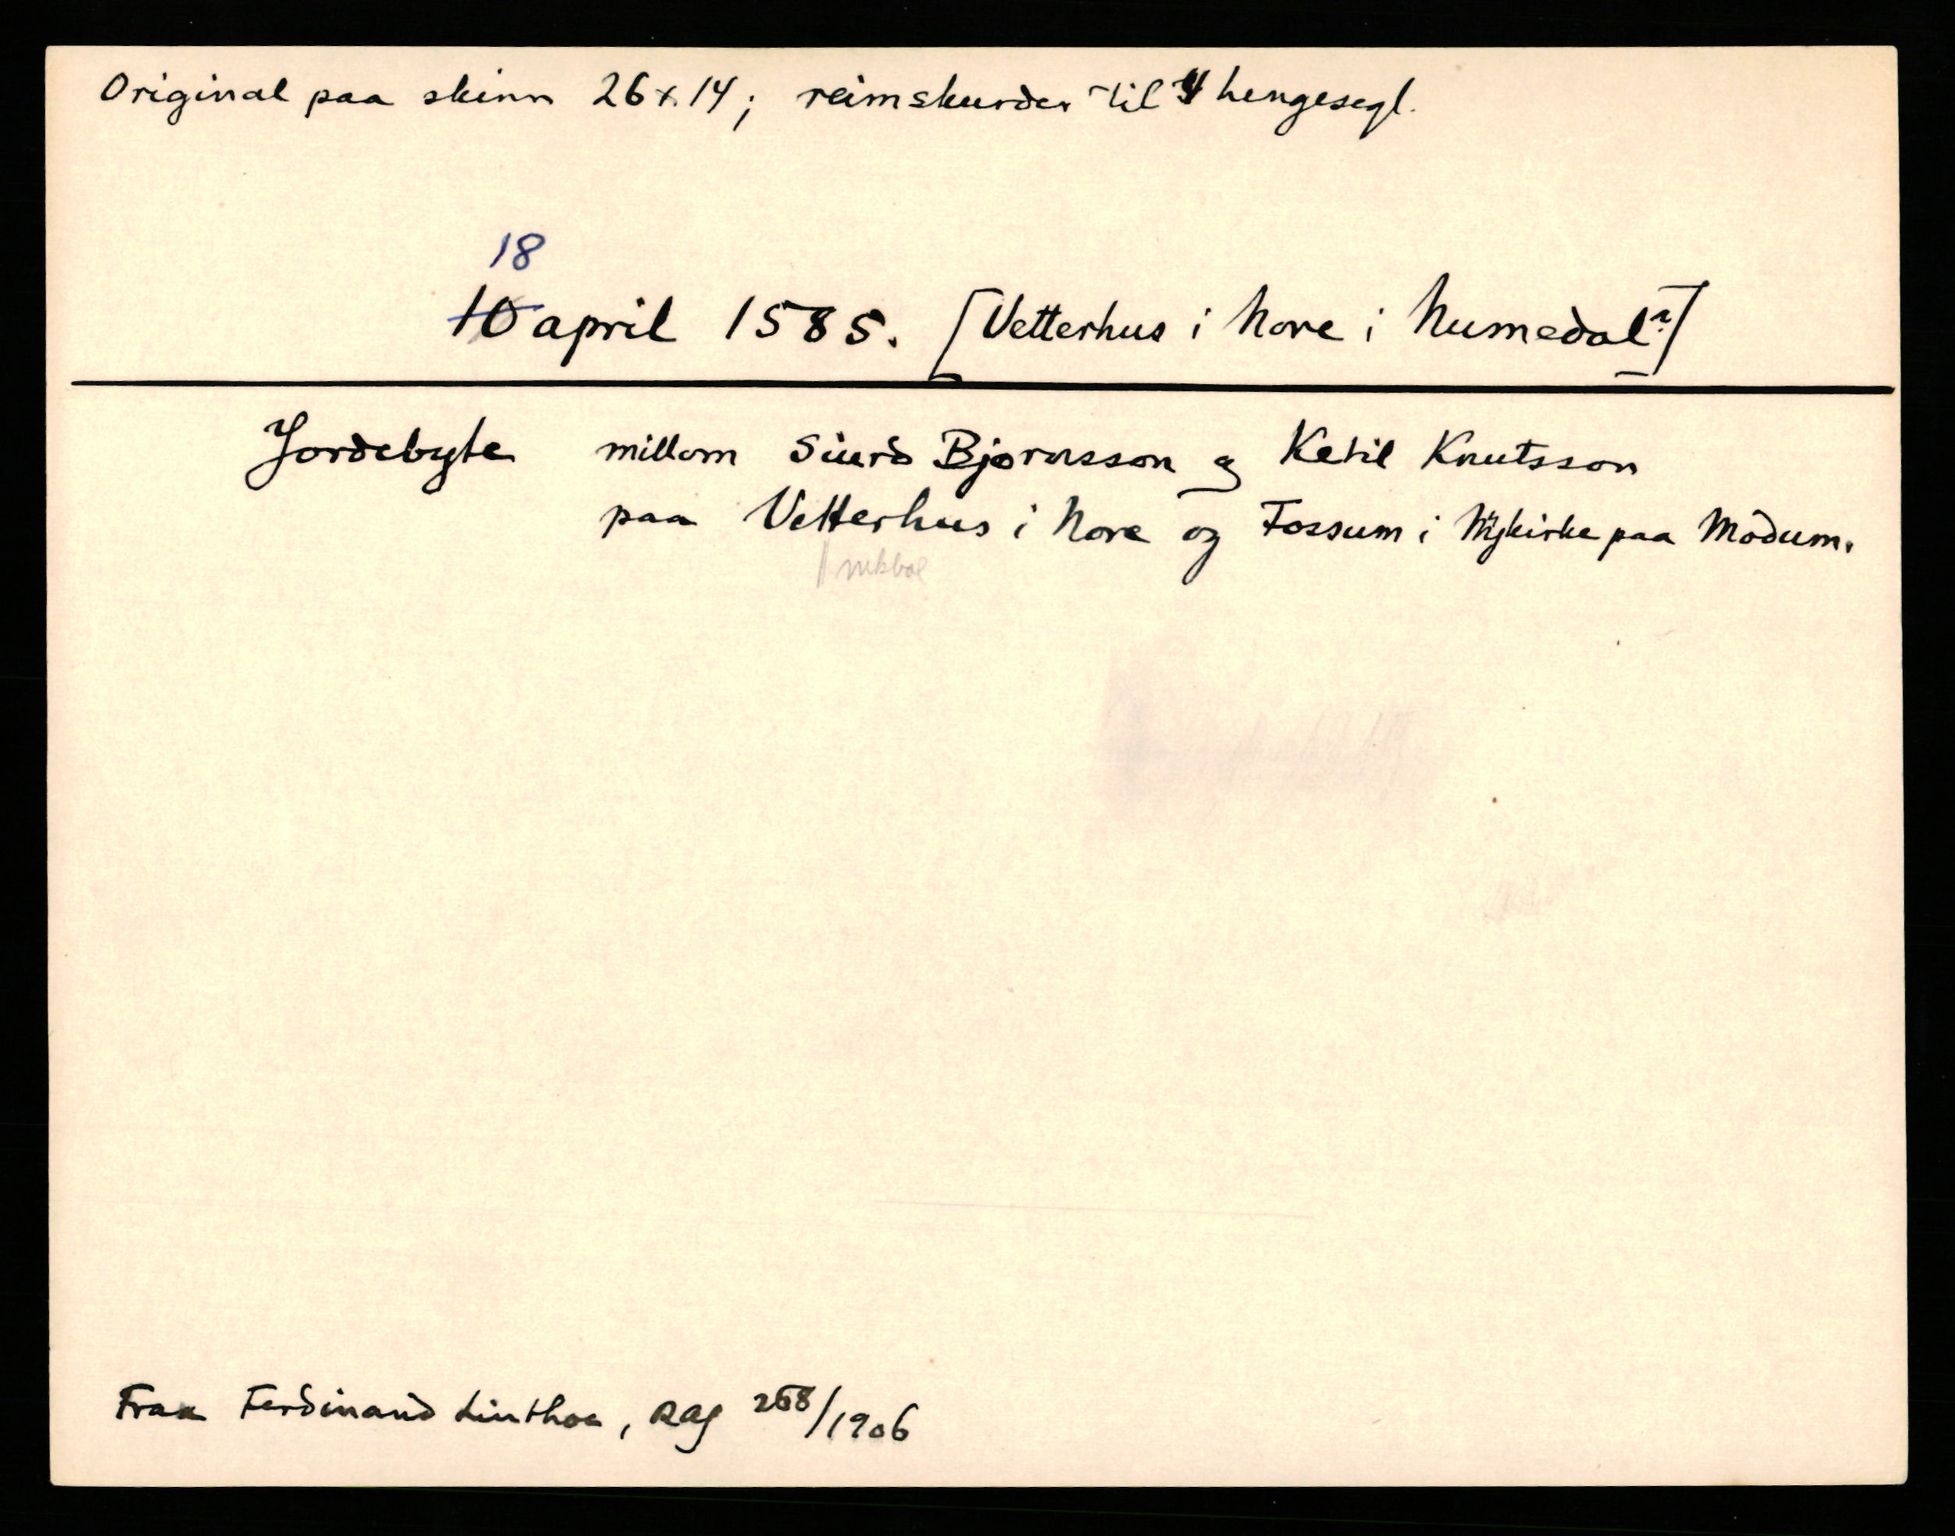 Original paa skinn 26 x 14; reimskurder til 4 hengesegl.
18
10 april 1585. [Vetterhus i Nore i Numedal?]
Jordebyte millom Siurd Bjørnsson og Ketil Knutsson
paa Vetterhus i Nore og Fossum i Nykirke paa Modum.
Fraa Ferdinand Linthoe, RAJ 268/1906